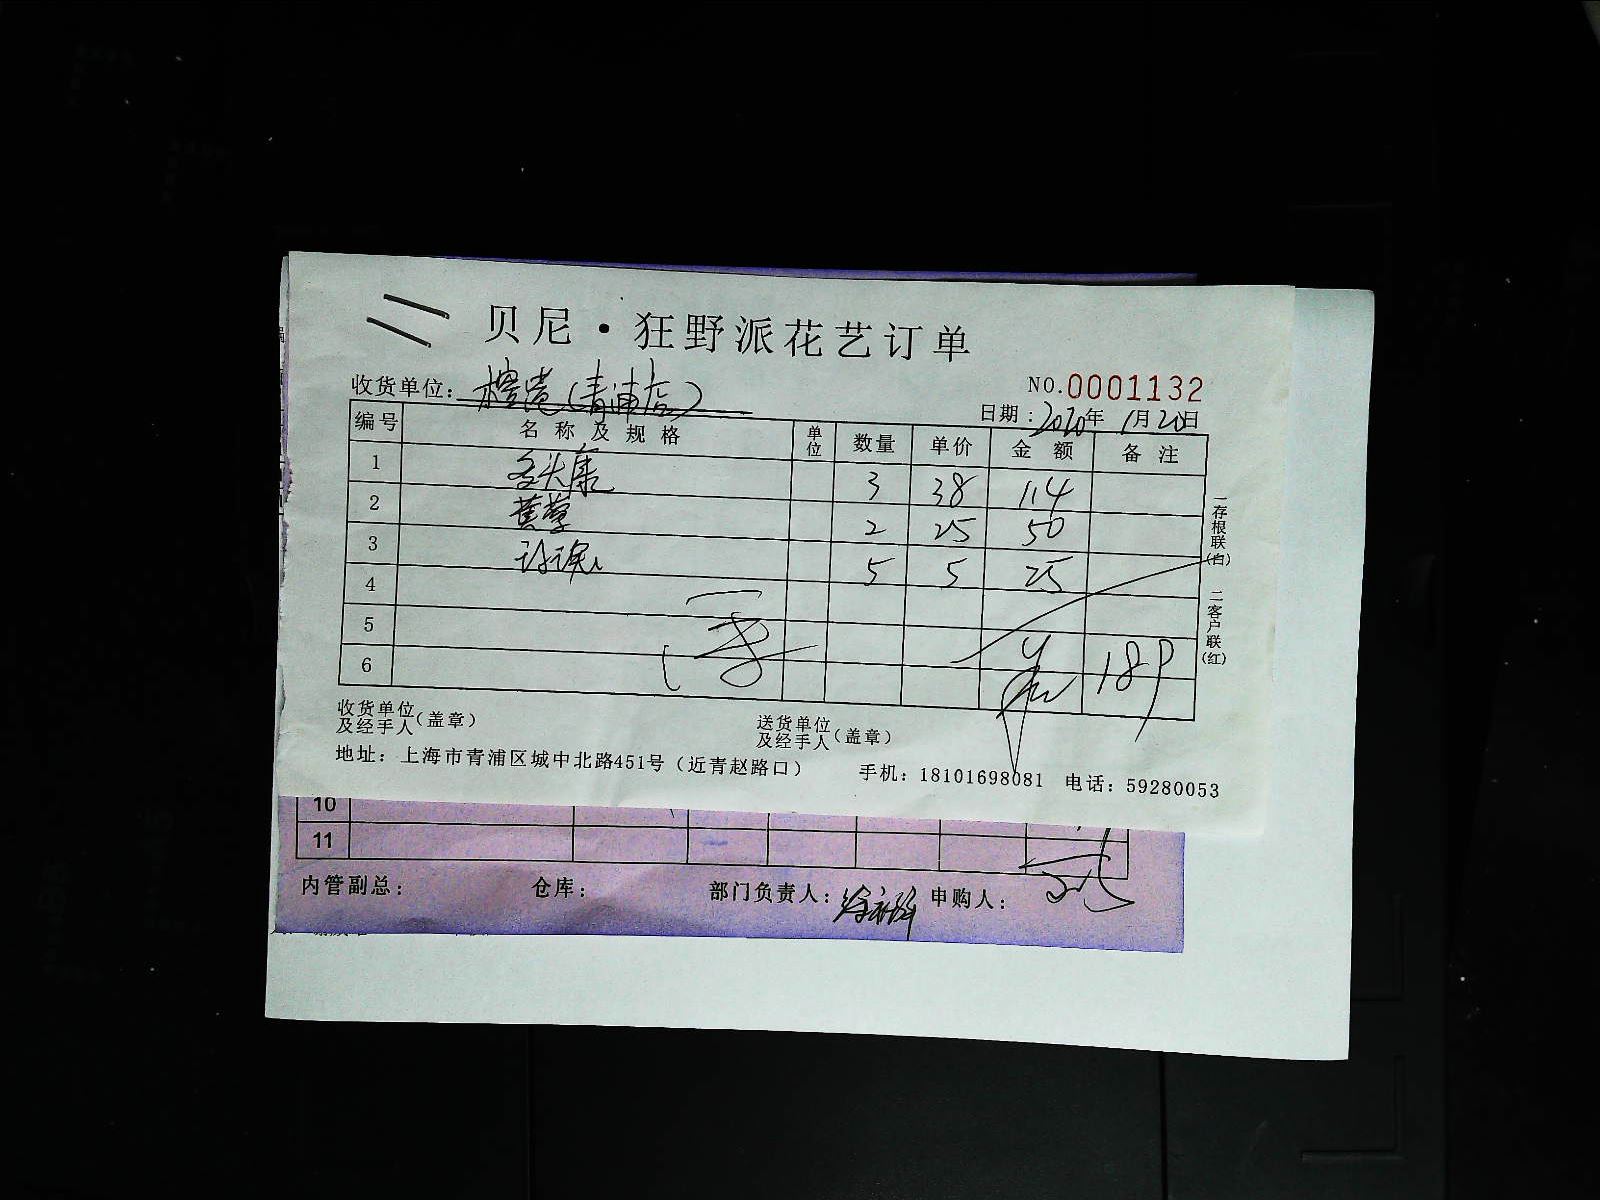 贝尼·狂野派花艺订单
收货单位：檀宫(青浦店)
NO.0001132
日期：2020年1月20日
编号 名称及规格 单位 数量 单价 金额 备注
1 多头康 3 38 114
2 黄莺 2 25 50
3 5 5 25
4
5
6
189
一存根联(白) 二客户联(红)
收货单位及经手人(盖章) 送货单位及经手人(盖章)
地址：上海市青浦区城中北路451号（近青赵路口） 手机：18101698081 电话：59280053
10
11
内管副总： 仓库： 部门负责人： 申购人：